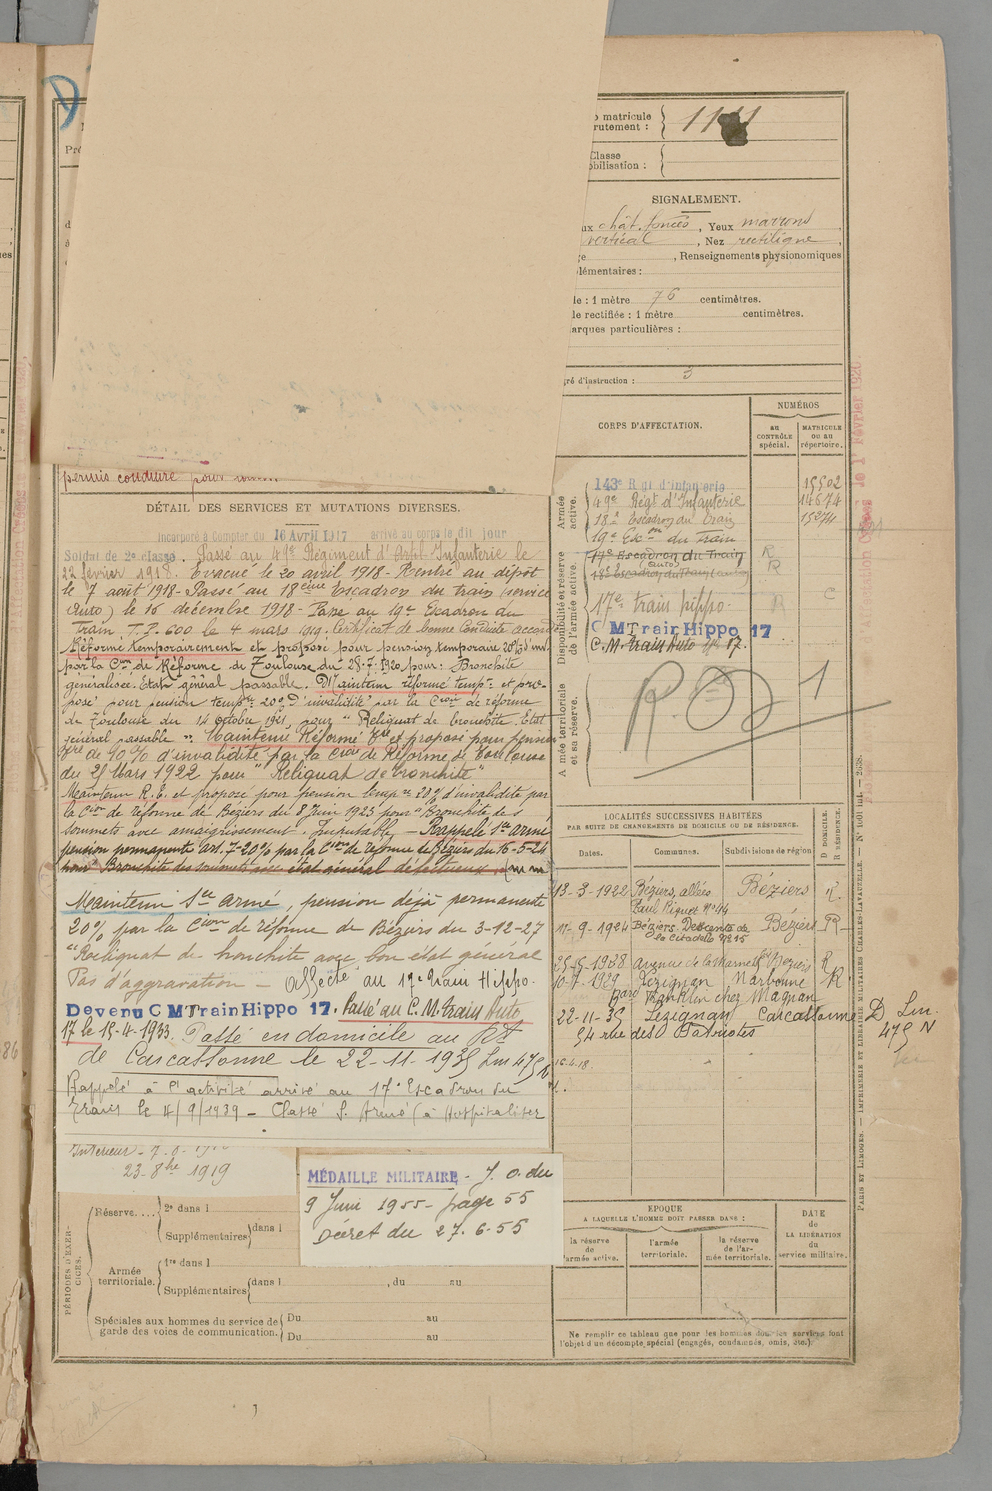 matricule
rutement :
1111
Classe
obilisation :
SIGNALEMENT.
ux chât. foncés, Yeux marrons
vertical, Nez rectiligne
, Renseignements physionomiques
lémentaires :
le : 1 mètre 76 centimètres.
le rectifiée : 1 mètre centimètres.
arques particulières :
gré d'instruction : 3
CORPS D'AFFECTATION.
NUMÉROS
AU CONTRÔLE spécial.
MATRICULE OU AU répertoire.
permis conduire pour
DÉTAIL DES SERVICES ET MUTATIONS DIVERSES.
Incorporé à compter du 16 Avril 1917 arrivé au corps le dit jour
Soldat de 2e classe. Passé au 49e Régiment d'Infanterie le
22 février 1918. Evacué le 20 avril 1918 - Rentré au dépôt
le 7 août 1918 - Passé au 18ème Escadron du train (service
Auto) le 16 décembre 1918 - Passé au 19e Escadron du
Train T.P. 600 le 4 mars 1919. Certificat de bonne Conduite accordé
Réformé temporairement et proposé pour pension temporaire 20% d'inv.
par la Cion de Réforme de Toulouse du 28-7-1920 pour : Bronchite
généralisée. Etat général passable. Maintenu réformé tempre et pro-
posé pour pension tempre 20% d'invalidité par la Cion de réforme
de Toulouse du 14 octobre 1921 pour "Reliquat de bronchite. Etat
général passable". Maintenu Réformé et proposé pour pension
de 90% d'invalidité par la Cion de Réforme de Toulouse
du 21 Mars 1922 pour "Reliquat de bronchite"
Maintenu R.T. et proposé pour pension tempre 20% d'invalidité par
la Cion de réforme de Béziers du 8 Juin 1923 pour "Bronchite des
sommets avec amaigrissement. imputable - Rappelé Sce armé
pension permanente art. 7 - 20% par la Cion de réforme de Béziers du 16-5-24
pour "Bronchite des sommets avec état général défectueux"
Maintenu Sce armé, pension déjà permanente
20% par la Cion de réforme de Béziers du 3-12-27
"Reliquat de bronchite avec bon état général
Pas d'aggravation - affecté au 17e Train Hippo.
Devenu C M Train Hippo 17. Passé au C.M. train Auto
17 le 15-4-1933. Passé en domicile au Rt
de Carcassonne le 22-11-1935 Lm 475 N
Rappelé à l'activité arrivé au 17e Escadron du
Train le 4/9/1939 - Classé S. Armé (à Hospitaliser
Intérieur
23-8bre 1919
MÉDAILLE MILITAIRE - J.O. du
9 Juin 1955 - page 55
Décret du 27.6.55
Armée active.
143e Rgt d'Infanterie 15502
49e Régt d'Infanterie 14674
18e Escadron du train 15274
19e Escon du Train
Disponibilité et réserve de l'armée active.
17e Escadron du Train (auto) R
R
17e train hippo. R C
C M Train Hippo 17
C.M. train Auto N° 17.
Armée territoriale et sa réserve.
R. 1
LOCALITÉS SUCCESSIVES HABITÉES
PAR SUITE DE CHANGEMENTS DE DOMICILE OU DE RÉSIDENCE.
Dates.
Communes.
Subdivisions de région
D DOMICILE.
R RÉSIDENCE.
13-3-1922 Béziers, allées Béziers R.
Paul Riquet N° 44
11-9-1924 Béziers. Descente de Béziers R
la Citadelle N° 15
avenue de la marne Béziers R
10-7-1929 Lézignan Narbonne R
Bard Franklin chez Magnan
22-11-35 Lézignan Carcassonne D Lm.
54 rue des Patriotes 475 N
ÉPOQUE
A LAQUELLE L'HOMME DOIT PASSER DANS :
la réserve de l'armée active.
l'armée territoriale.
la réserve de l'armée territoriale.
DATE de LA LIBÉRATION du service militaire.
Ne remplir ce tableau que pour les hommes dont les services font
l'objet d'un décompte spécial (engagés, condamnés, omis, etc.).
PÉRIODES D'EXERCICES.
Réserve.... 2e dans l
Supplémentaires dans l
Armée territoriale. 1re dans l
Supplémentaires dans l , du au
Spéciales aux hommes du service de garde des voies de communication. Du au
Du au
PARIS ET LIMOGES. — IMPRIMERIE ET LIBRAIRIE MILITAIRES CHARLES-LAVAUZELLE.